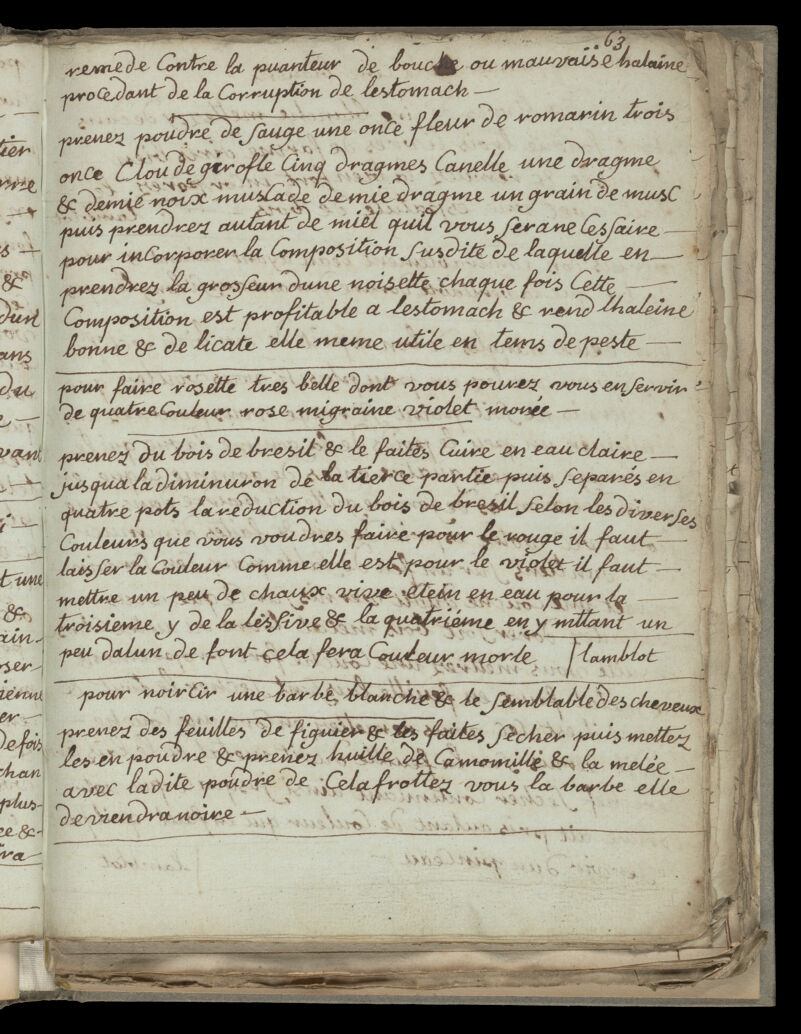 63
remede Contre la puanteur de bouche ou mauvaise halaine
procedant de la Corruption de lestomach —
prenez poudre de sauge une once fleur de romarin trois
once Clou de girofle Cinq dragmes Canelle une dragme
& demie noix muscade demie dragme un grain de musc
puis prendrez autant de miel quil vous sera necessaire —
pour incorporer la Composition susdite de laquelle en —
prendrez la grosseur dune noisette chaque fois Cette —
Composition est profitable a lestomach & rend lhaleine
bonne & delicate elle meme utile en tems de peste —
pour faire rosette tres belle dont vous pourez vous en servir
de quatre Couleur rose migraine violet morée —
prenez du bois de bresil & le faites Cuire en eau claire —
jusqua la diminuron de la tierce partie puis separés en
quatre pots la reduction du bois de bresil selon les diverses
Couleurs que vous voudres faire pour le rouge il faut —
laisser la Couleur Comme elle est pour le violet il faut —
mettre un peu de chaux vive etein en eau pour la —
troisieme y de la lessive & la quatriéme en y mttant un
peu dalun de font cela fera Couleur morte / lamblot
pour noircir une barbe blanche & le semblable des cheveux
prenez des feuilles de figuier & les faites secher puis mettez
les en poudre & prenez huille de Camomille & la melée —
avec ladite poudre de Cela frottez vous la barbe elle
deviendra noire —